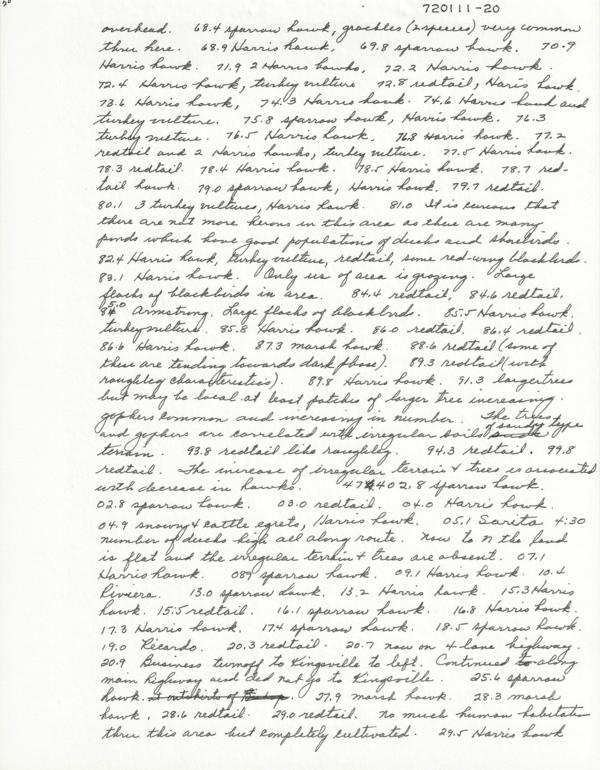 720111-20
overhead. 68.4 sparrow hawk, grackles (2 species) very common
thru here. 68.9 Harris hawk, 69.8 sparrow hawk. 70.9
Harris hawk. 71.9 2 Harris hawks, 72.2 Harris hawk.
72.4 Harris hawk, turkey vulture 72.8 redtail, Haris hawk.
73.6 Harris hawk, 74.3 Harris hawk. 74.6 Harris hawk and
turkey vulture. 75.8 sparrow hawk, Harris hawk. 76.3
turkey vulture. 76.5 Harris hawk. 76.8 Harris hawk. 77.2
redtail and 2 Harris hawks, turkey vulture. 77.5 Harris hawk.
78.3 redtail. 78.4 Harris hawk. 78.5 Harris hawk. 78.7 red-
tail hawk. 79.0 sparrow hawk, Harris hawk. 79.7 redtail.
80.1 3 turkey vultures, Harris hawk. 81.0 It is curious that
there are not more herons in this area as there are many
ponds which have good populations of ducks and shorebirds.
82.4 Harris hawk, turkey vulture, redtail, some red-wing blackbirds.
83.1 Harris hawk. Only use of area is grazing. Large
flocks of blackbirds in area. 84.4 redtail, 84.6 redtail.
85.0 Armstrong. Large flocks of blackbirds. 85.5 Harris hawk.
turkey vulture. 85.8 Harris hawk. 86.0 redtail. 86.4 redtail.
86.6 Harris hawk. 87.3 marsh hawk. 88.6 redtail (some of
these are tending towards dark phase). 89.3 redtail (with
roughleg characteristics). 89.8 Harris hawk. 91.3 larger trees
but may be local at least patches of larger tree increasing.
gophers common and increasing in number. The trees
and gophers are correlated with irregular soils of sandy type
terrain. 93.8 redtail like roughleg. 94.3 redtail. 99.8
redtail. The increase of irregular terrain & trees is associated
with decrease in hawks. 47402.8 sparrow hawk.
02.8 sparrow hawk. 03.0 redtail. 04.0 Harris hawk.
04.9 snowy & cattle egrets, Harris hawk. 05.1 Sarita 4:30
number of ducks high all along route. Now to N the land
is flat and the irregular terrain & trees are absent. 07.1
Harris hawk. 089 sparrow hawk. 09.1 Harris hawk. 10.4
Riviera. 13.0 sparrow hawk. 13.2 Harris hawk. 15.3 Harris
hawk. 15.5 redtail. 16.1 sparrow hawk. 16.8 Harris hawk.
17.3 Harris hawk. 17.4 sparrow hawk. 18.5 sparrow hawk.
19.0 Ricardo. 20.3 redtail. 20.7 now on 4 lane highway.
20.9 Business turnoff to Kingsville to left. Continued along
main highway and did not go to Kingsville. 25.6 sparrow
hawk. at outskirts of Bishop. 27.9 marsh hawk. 28.3 marsh
hawk. 28.6 redtail. 29.0 redtail. no much human habitation
thru this area but completely cultivated. 29.5 Harris hawk